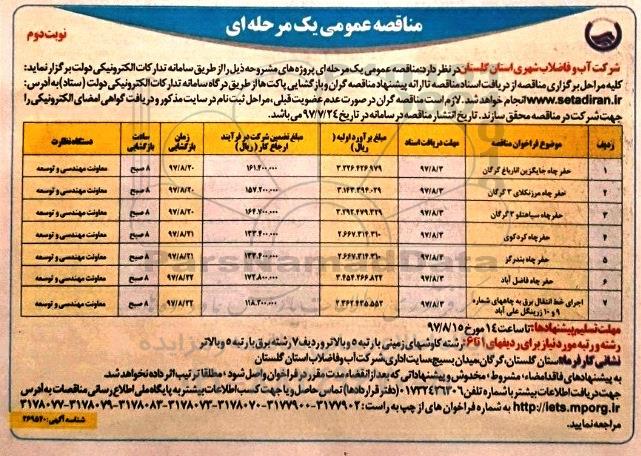 مناقصه عمومی یک مرحله ای
نوبت دوم
شرکت آب و فاضلاب شهری استان گلستان در نظر دارد: مناقصه عمومی یک مرحله ای پروژه های مشروحه ذیل را از طریق سامانه تدارکات الکترونیکی دولت برگزار نماید:
کلیه مراحل برگزاری مناقصه از دریافت اسناد مناقصه تا ارائه پیشنهاد مناقصه گران و بازگشایی پاکت ها از طریق درگاه سامانه تدارکات الکترونیکی دولت (ستاد) به آدرس:
www.setadiran.ir انجام خواهد شد. لازم است مناقصه گران در صورت عدم عضویت قبلی، مراحل ثبت نام در سایت مذکور و دریافت گواهی امضای الکترونیکی را
جهت شرکت در مناقصه محقق سازند. تاریخ انتشار مناقصه در سامانه در تاریخ ۹۷/۷/۲۴ می باشد.
ردیف موضوع فراخوان مناقصه مهلت دریافت اسناد مبلغ برآورد اولیه (ریال) مبلغ تضمین شرکت در فرآیند ارجاع کار (ریال) زمان بازگشایی ساعت بازگشایی دستگاه نظارت
۱ حفر چاه جایگزین انارباغ گرگان ۹۷/۸/۳ ۳.۲۲۶.۴۲۶.۹۷۹ ۱۶۱.۴۰۰.۰۰۰ ۹۷/۸/۲۰ ۸ صبح معاونت مهندسی و توسعه
۲ حفر چاه مرزنکلای ۳ گرگان ۹۷/۸/۳ ۳.۱۴۳.۳۹۶.۰۲۹ ۱۵۷.۲۰۰.۰۰۰ ۹۷/۸/۲۰ ۸ صبح معاونت مهندسی و توسعه
۳ حفر چاه سیاهتلو ۳ گرگان ۹۷/۸/۳ ۳.۲۹۲.۴۷۹.۳۲۹ ۱۶۴.۷۰۰.۰۰۰ ۹۷/۸/۲۰ ۸ صبح معاونت مهندسی و توسعه
۴ حفر چاه کردکوی ۹۷/۸/۳ ۲.۶۶۷.۳۱۴.۳۱۰ ۱۳۳.۴۰۰.۰۰۰ ۹۷/۸/۲۱ ۸ صبح معاونت مهندسی و توسعه
۵ حفر چاه بندرگز ۹۷/۸/۳ ۲.۶۶۷.۳۱۴.۳۱۰ ۱۳۳.۴۰۰.۰۰۰ ۹۷/۸/۲۱ ۸ صبح معاونت مهندسی و توسعه
۶ حفر چاه فاضل آباد ۹۷/۸/۳ ۳.۴۵۴.۲۶۶.۸۲۲ ۱۷۲.۸۰۰.۰۰۰ ۹۷/۸/۲۲ ۸ صبح معاونت مهندسی و توسعه
۷ اجرای خط انتقال برق به چاههای شماره ۹ و ۱۰ زرینگل علی آباد ۹۷/۸/۳ ۲.۳۶۲.۴۳۵.۵۵۲ ۱۱۸.۲۰۰.۰۰۰ ۹۷/۸/۲۲ ۸ صبح معاونت مهندسی و توسعه
مهلت تسلیم پیشنهادها: تا ساعت ۱۴ مورخ ۹۷/۸/۱۵
رشته و رتبه مورد نیاز برای ردیفهای ۱ تا ۶: رشته کاوشهای زمینی با رتبه ۵ و بالاتر و ردیف ۷ رشته برق با رتبه ۵ و بالاتر
نشانی کارفرما: استان گلستان، گرگان میدان بسیج سایت اداری شرکت آب و فاضلاب استان گلستان
به پیشنهادهای فاقد امضاء، مشروط، مخدوش و پیشنهاداتی که بعد از انقضاء مدت مقرر در فراخوان واصل شود، مطلقا ترتیب اثر داده نخواهد شد.
جهت دریافت اطلاعات بیشتر با شماره تلفن ۰۱۷۳۲۴۲۶۳۰۶ (دفتر قراردادها) تماس حاصل و یا جهت کسب اطلاعات بیشتر به پایگاه ملی اطلاع رسانی مناقصات به آدرس
http://iets.mporg.ir به شماره فراخوان های از چپ به راست: ۳۱۷۷۹۰۲-۳۱۷۷۹۰۰-۳۱۷۸۰۷۰-۳۱۷۸۰۷۳-۳۱۷۸۰۸۳-۳۱۷۸۰۷۹-۳۱۷۸۰۷۷
مراجعه نمایید.
شناسه آگهی: ۲۶۹۵۲۰
ParsNamadData